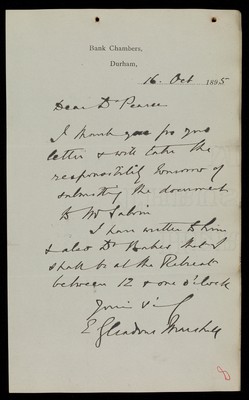 Bank Chambers,
Durham,
16. Oct 1895
Dear Dr Pearse
I thank you for your
letter & will take the
responsibility tomorrow of
submitting the document
to Mr
I have written to him
& also Dr that I
shall be at the Retreat
between 12 & one o'clock
Yours
E Gleadowe Marshall